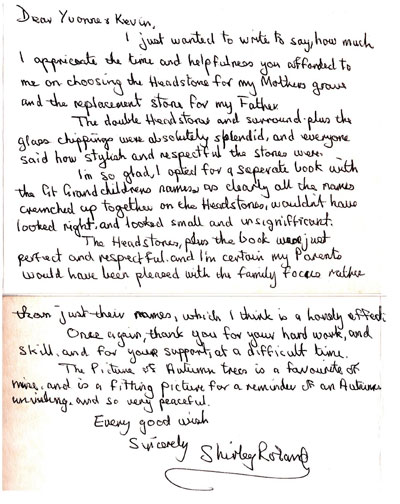 Dear Yvonne & Kevin,
I just wanted to write to say, how much
I appriceate the time and helpfulness you afforded to
me on choosing the Headstone for my Mothers grave
and the replacement stone for my Father
The double Headstones and surround plus the
glass chippings were absolutely splendid, and everyone
said how stylish and respectful the stones were.
I'm so glad, I opted for a seperate book with
the Gt Grandchildrens names, as clearly all the names
crunched up together on the Headstones, wouldn't have
looked right, and looked small and unsignifficant.
The Headstones, plus the book were just
perfect and respectful. and I'm certain my Parents
would have been pleased with the family focus rather
than just their names, which I think is a lovely effect.
Once again, thank you for your hard work, and
skill, and for your support, at a difficult time.
The Picture of Autumn trees is a favourite of
mine, and is a fitting picture for a reminder of an Autumn
and so very peaceful.
Every good wish
Sincerely
Shirley